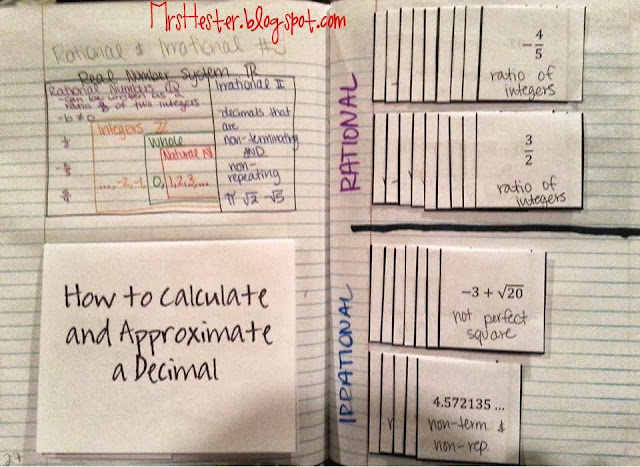 MrsHester.blogspot.com
Rational & Irrational #s
Real Number System ℝ
Rational Numbers ℚ
-can be written as a
ratio a/b of two integers
-b ≠ 0
Integers ℤ
Whole
Natural ℕ
..., -2, -1, 0, 1, 2, 3, ...
Irrational 𝕀
-decimals that
are
non-terminating
AND
non-
repeating
π √2 -√3
How to Calculate
and Approximate
a Decimal
27
RATIONAL
-4/5
ratio of
integers
3/2
ratio of
integers
IRRATIONAL
-3 + √20
not perfect
square
4.572135 ...
non-term &
non-rep.